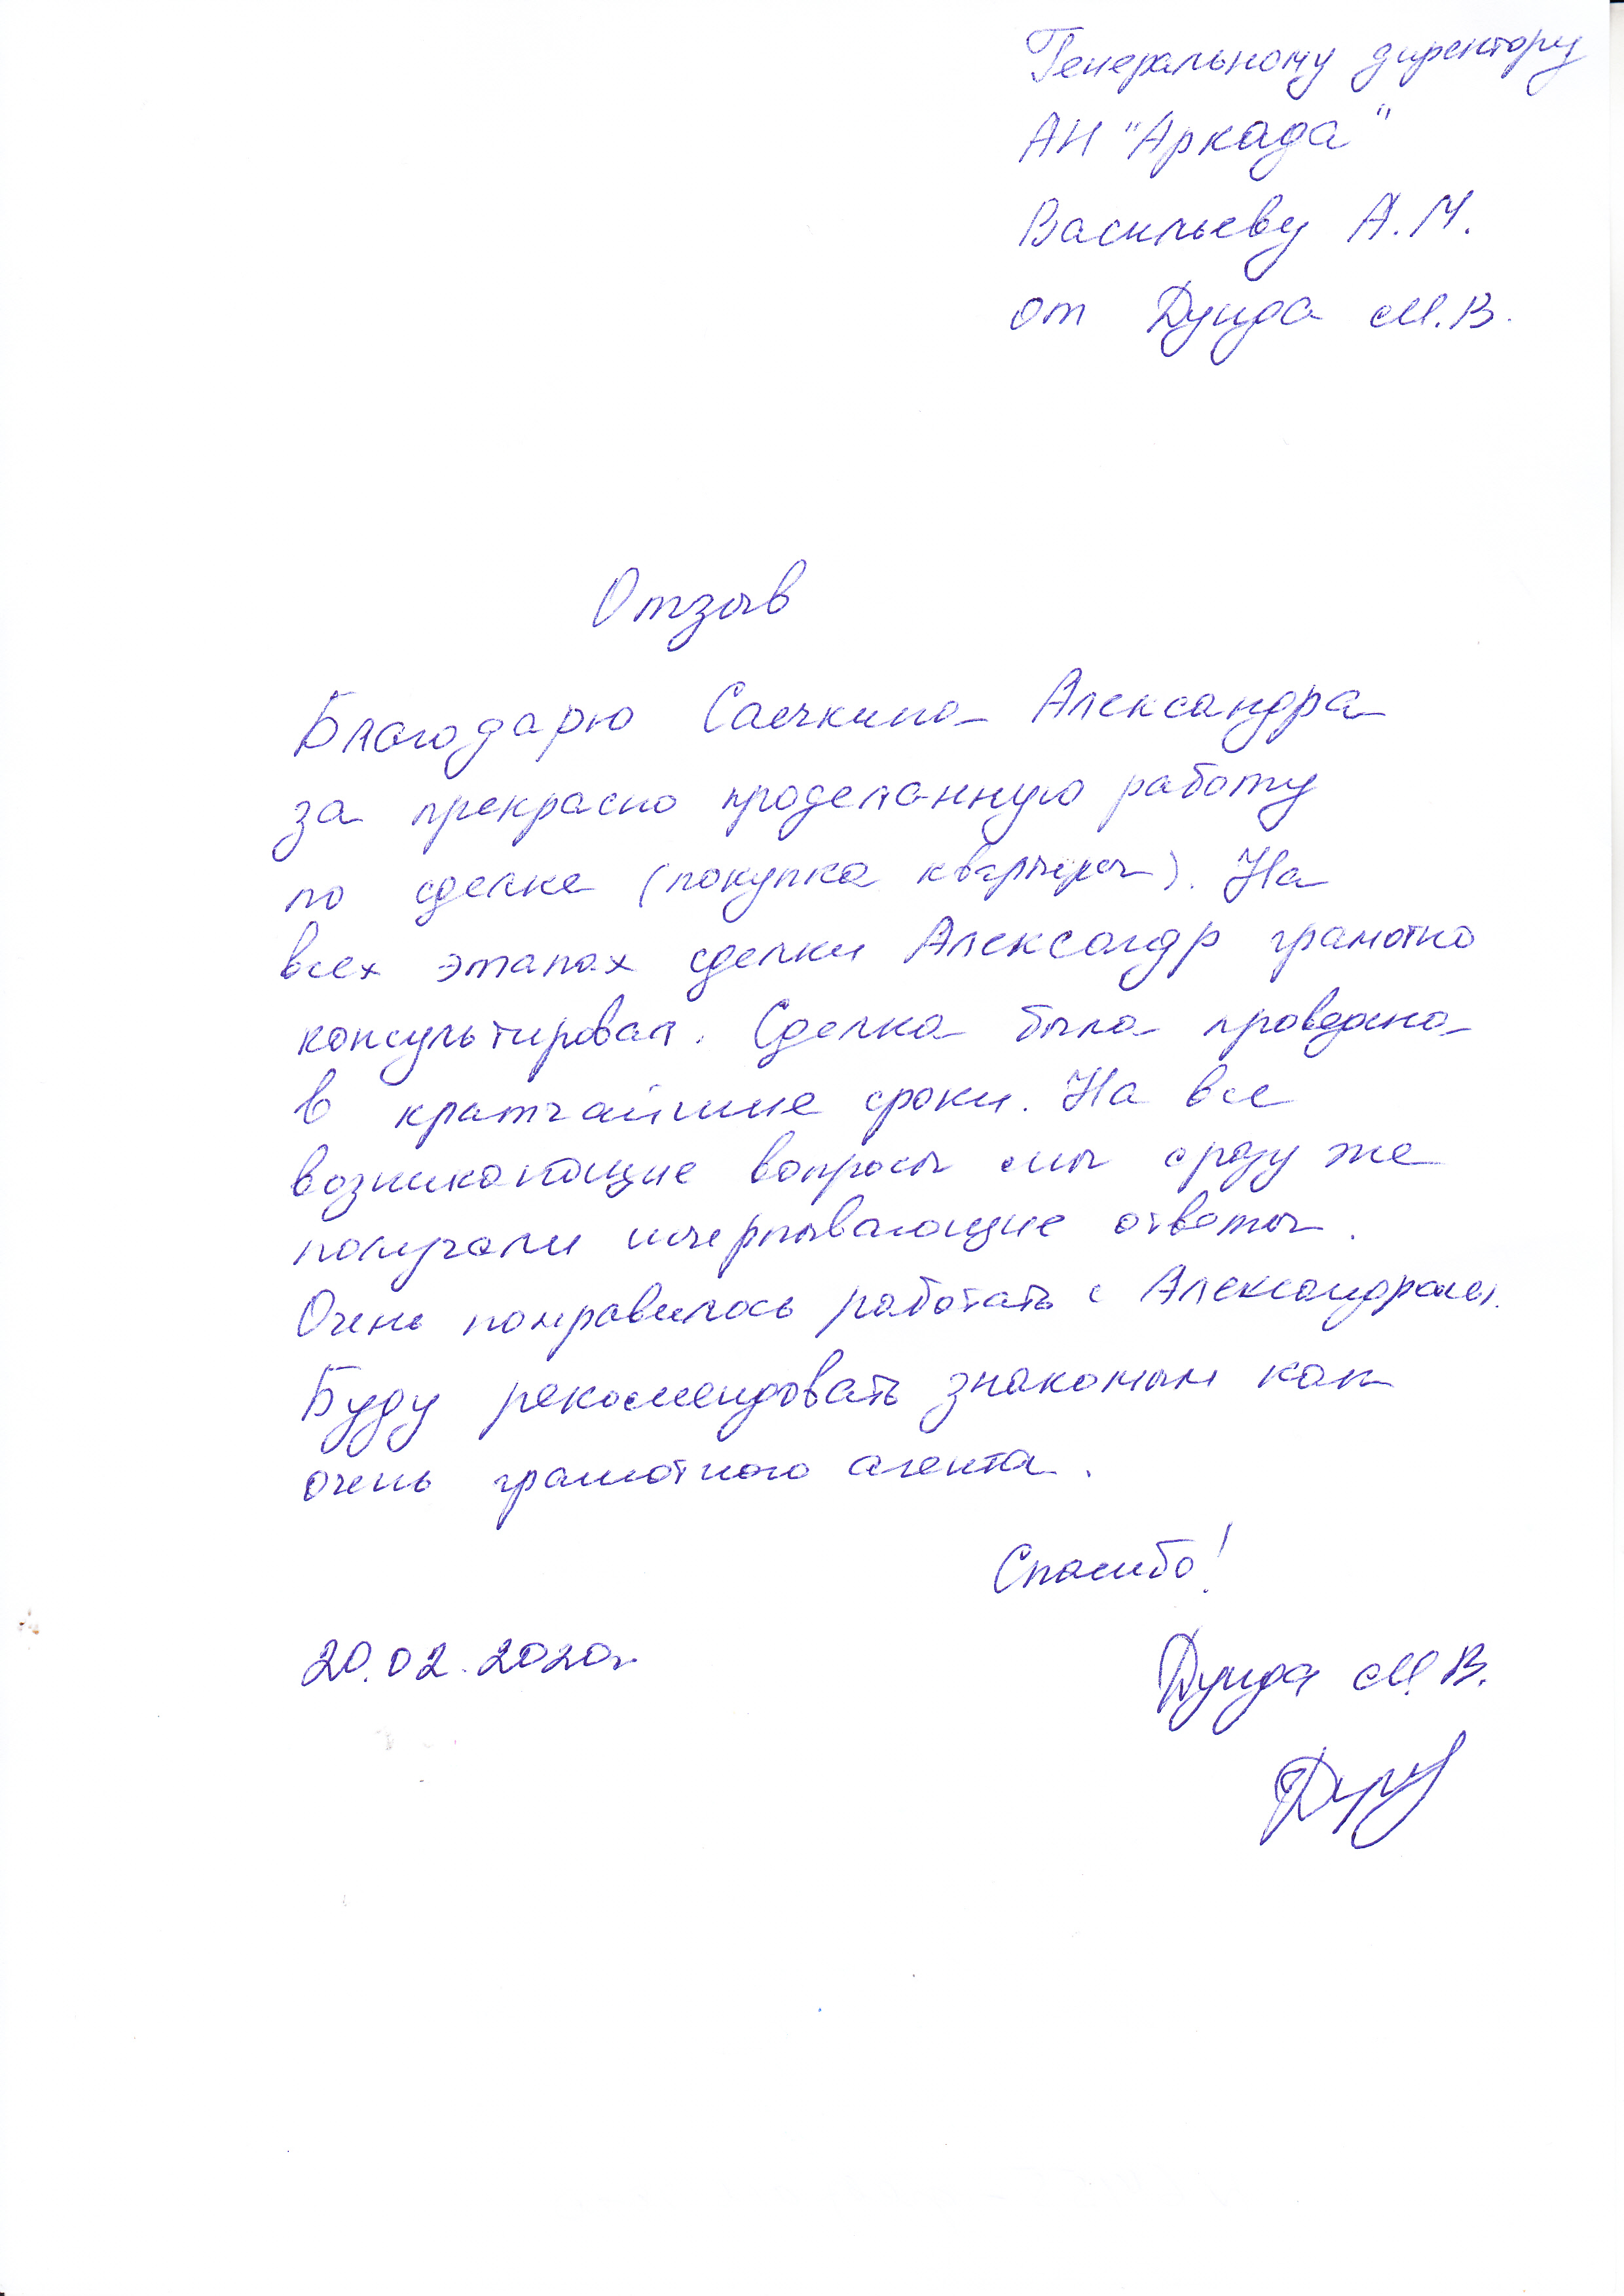 Генеральному директору
АН "Аркада"
Васильеву А.М.
от Дунда М.В.
Отзыв
Благодарю Саечкина Александра
за прекрасно проделанную работу
по сделке (покупка квартиры). На
всех этапах сделки Александр грамотно
консультировал. Сделка была проведена
в кратчайшие сроки. На все
возникающие вопросы мы сразу же
получали исчерпывающие ответы.
Очень понравилось работать с Александром.
Буду рекомендовать знакомым как
очень грамотного агента.
Спасибо!
20.02.2020г
Дунда М.В.